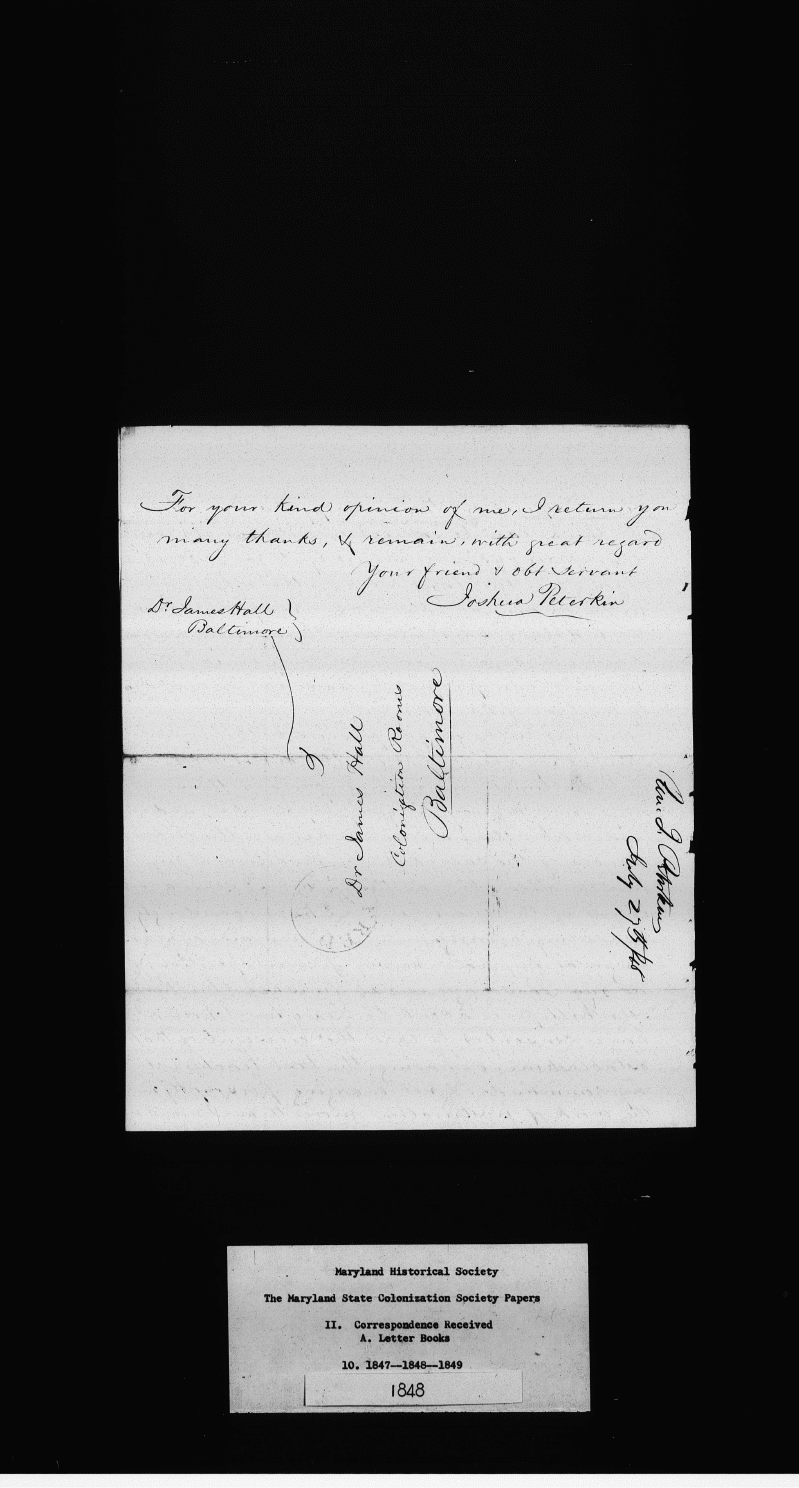 For your kind opinion of me, I return you
many thanks, & remain, with great regard
Your friend & obt servant
Joshua Peterkin
Dr. James Hall
Baltimore
Dr James Hall
Colonization Rooms
Baltimore
J Peterkin
July 27th/48
Maryland Historical Society
The Maryland State Colonization Society Papers
II. Correspondence Received
A. Letter Books
10. 1847--1848--1849
1848